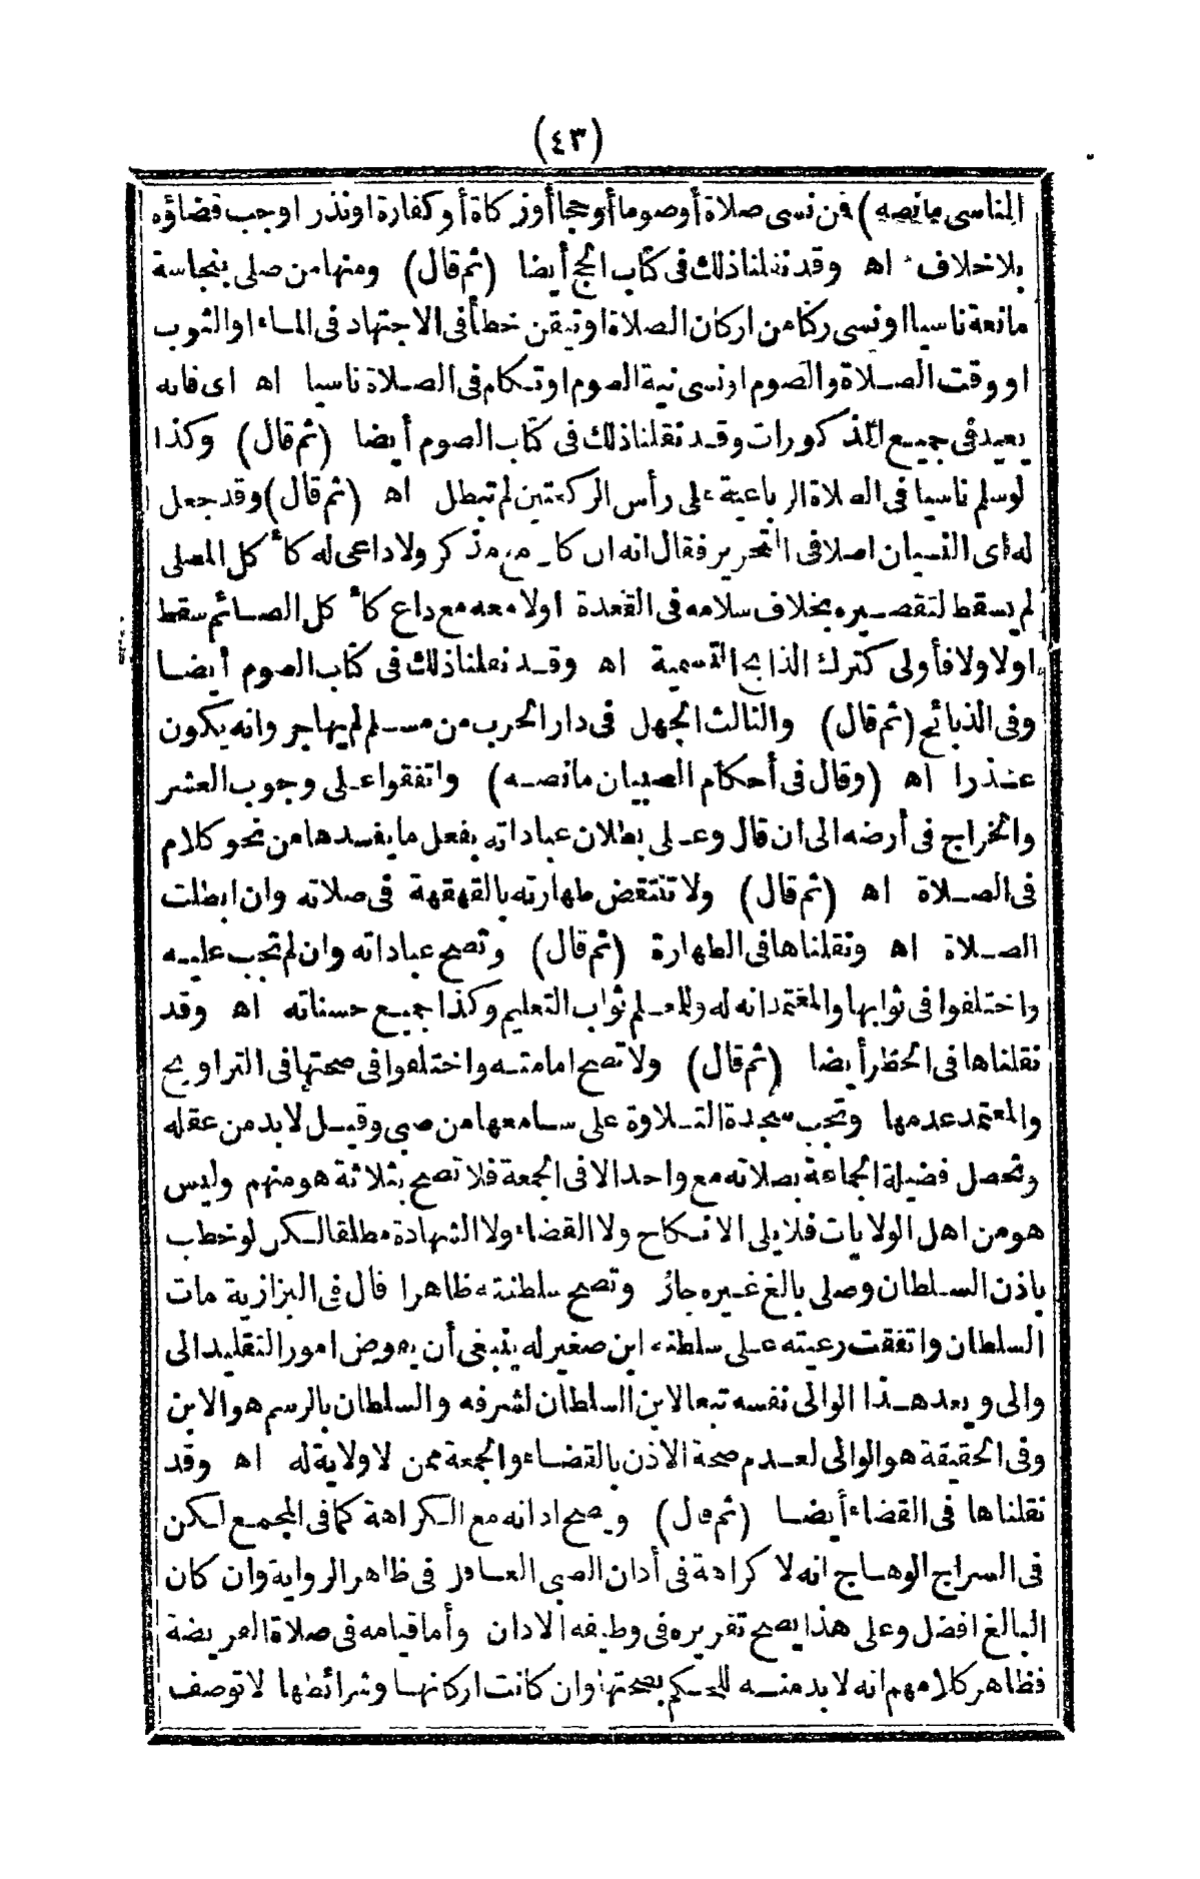 (٤٣)
الناسى مانصه) فمن نسى صلاة أوصوما أوحجا أوزكاة أوكفارة اونذرا وجب قضاؤه
بلاخلاف اه وقد نقلنا ذلك فى كتاب الحج أيضا (ثم قال) ومنها من صلى بنجاسة
مانعة ناسيا اونسى ركنا من اركان الصلاة اوتيقن خطأ فى الاجتهاد فى الماء اوالثوب
اووقت الصلاة والصوم اونسى نية الصوم اوتكلم فى الصلاة ناسيا اه اى فانه
يعيد فى جميع المذكورات وقد نقلنا ذلك فى كتاب الصوم أيضا (ثم قال) وكذا
لوسلم ناسيا فى الصلاة الرباعية على رأس الركعتين لم تبطل اه (ثم قال) وقد جعل
له أى النسيان اصلا فى التحرير فقال انه ان كان مع مذكر ولا داعى له كأكل المصلى
لم يسقط لتقصيره بخلاف سلامه فى القعدة اولا معه مع داع كأكل الصائم سقط
اولا ولا فأولى كترك الذابح التسمية اه وقد نقلنا ذلك فى كتاب الصوم أيضا
وفى الذبائح (ثم قال) والثالث الجهل فى دار الحرب من مسلم لم يهاجر وانه يكون
عذرا اه (وقال فى أحكام الصبيان مانصه) واتفقوا على وجوب العشر
والخراج فى أرضه الى ان قال وعلى بطلان عباداته بفعل ما يفسدها من نحو كلام
فى الصلاة اه (ثم قال) ولا تنتقض طهارته بالقهقهة فى صلاته وان ابطلت
الصلاة اه ونقلناها فى الطهارة (ثم قال) وتصح عباداته وان لم تجب عليه
واختلفوا فى ثوابها والمعتمد انه له وللمعلم ثواب التعليم وكذا جميع حسناته اه وقد
نقلناها فى الحظر أيضا (ثم قال) ولا تصح امامته واختلفوا فى صحتها فى التراويح
والمعتمد عدمها وتجب سجدة التلاوة على سامعها من صبى وقيل لابد من عقله
وتحصل فضيلة الجماعة بصلاته مع واحد الا فى الجمعة فلا تصح بثلاثة هو منهم وليس
هو من اهل الولايات فلا يلى الانكاح ولا القضاء ولا الشهادة مطلقا لكن لو خطب
باذن السلطان وصلى بالغ غيره جاز وتصح سلطنته ظاهرا قال فى البزازية مات
السلطان واتفقت رعيته على سلطنة ابن صغير له ينبغى أن يفوض امور التقليد الى
والى ويعد هذا الوالى نفسه تبعا لابن السلطان لشرفه والسلطان بالرسم هو الابن
وفى الحقيقة هو الوالى لعدم صحة الاذن بالقضاء والجمعة ممن لا ولاية له اه وقد
نقلناها فى القضاء أيضا (ثم قال) ويصح اذانه مع الكراهة كما فى المجمع لكن
فى السراج الوهاج انه لا كراهة فى أذان الصبى العاقل فى ظاهر الرواية وان كان
البالغ افضل وعلى هذا يصح تقريره فى وظيفة الاذان وأما قيامه فى صلاة الفريضة
فظاهر كلامهم انه لابد منه للحكم بصحتها وان كانت اركانها وشرائطها لا توصف